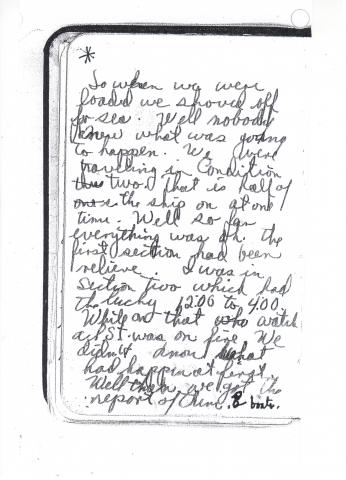 *
So when we were
loaded we shoved off
for sea. Well nobody
knew what was going
to happen. We were
traveling in Condition
two that is half of
the ship on at one
time. Well so far
everything was ok. the
first section had been
relieve. I was in
Section two which had
the lucky 12:00 to 4:00.
While on that watch
a LST was on fire. We
didn't know what
had happin at first.
Well then we got the
report of three E boats.